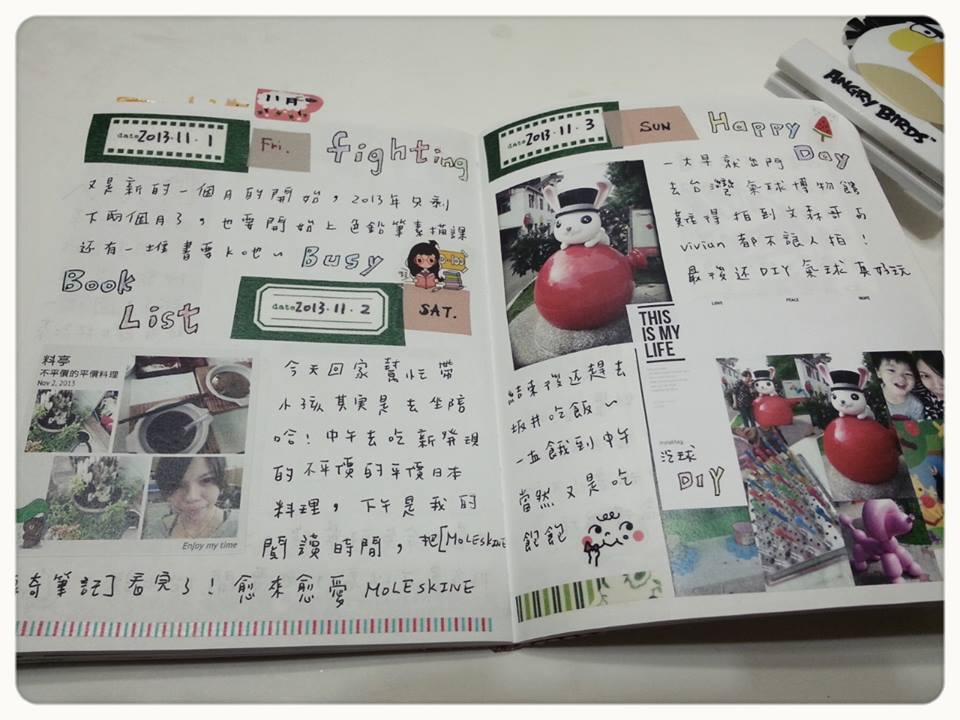 11月
date 2013.11.1
Fri.
fighting
又是新的一個月的開始，2013年只剩
下兩個月了，也要開始上色鉛筆素描課
还有一堆書要k他~ Busy
Book
List
date 2013.11.2
SAT.
料亭
不平價的平價料理
Nov 2, 2013
Enjoy my time
今天回家幫忙帶
小孩其實是去坐陪
哈！中午去吃新發現
的不平價的平價日本
料理，下午是我的
閱讀時間，把[MOLESKINE
奇筆記]看完了！愈來愈愛 MOLESKINE
date 2013.11.3
SUN
Happy
Day
一大早就出門
去台灣氣球博物館
難得拍到文森哥与
Vivian 都不讓人拍！
最後还DIY氣球真好玩
LOVE PEACE HOPE
THIS
IS MY
LIFE
結束後还趕去
坂井吃飯~
一直餓到中午
當然又是吃
飽飽
汽球
DIY
ANGRY BIRDS